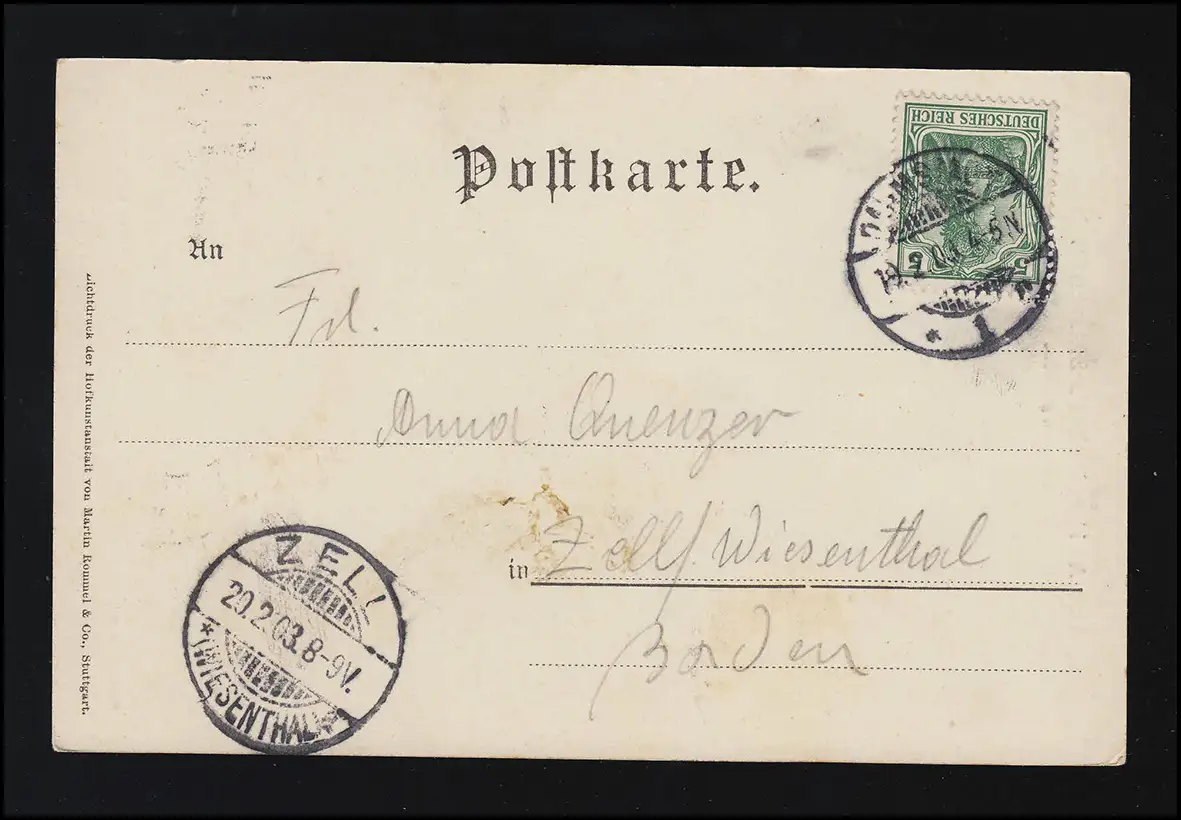 Postkarte.
DEUTSCHES REICH
5 5
19.2.03. 4-5N
* 1
An
Frl.
Anna Quenzer
in Zell/Wiesenthal
Baden
ZELL
20.2.03. 8-9V.
* (WIESENTHAL) *
Lichtdruck der Hofkunstanstalt von Martin Rommel & Co., Stuttgart.